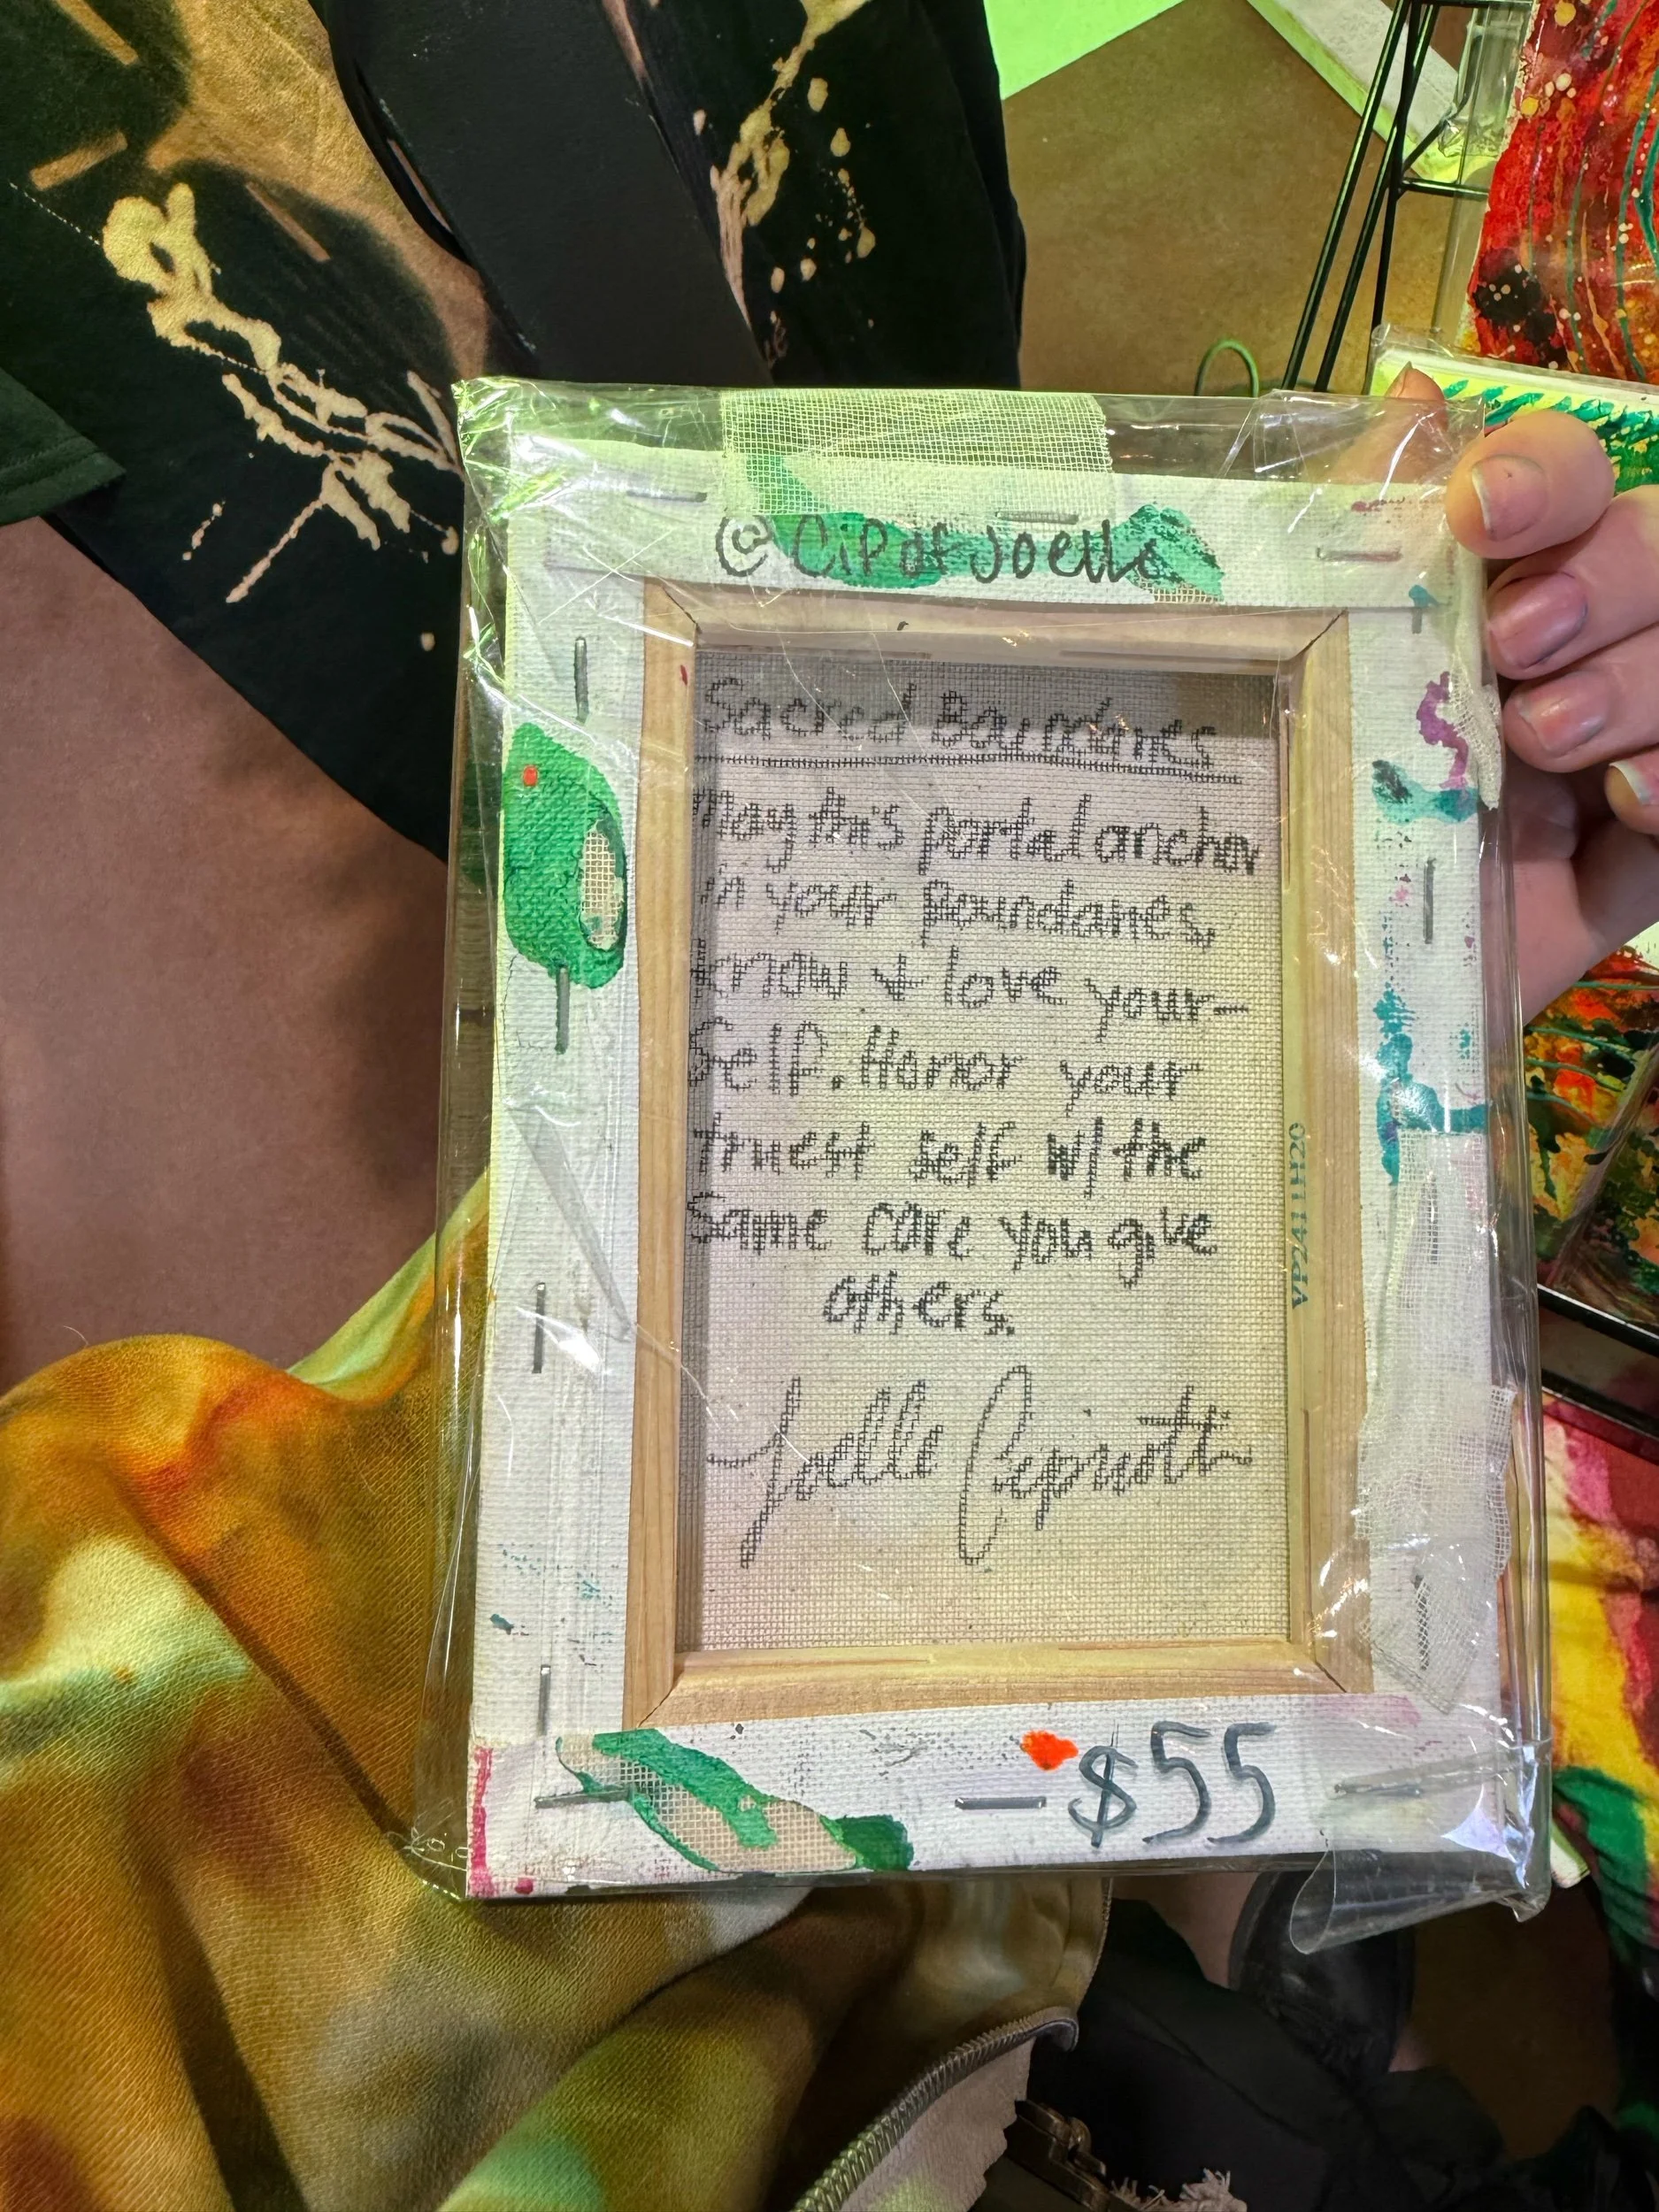 © CiP of Joelle
Sacred Boundaries
May this portal anchor
in your Boundaries,
know + love your-
self. Honor your
truest self w/ the
same care you give
others.
Joelle
VP241H20
$55